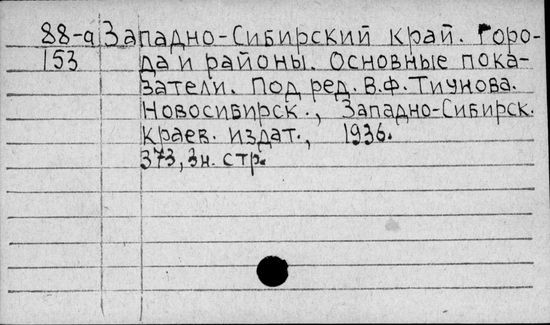 88-а Западно-Сибирский край. Горо-
153 да и районы. Основные пока-
затели. Под ред. В.Ф. Тиунова.
Новосибирск., Западно-Сибирск.
краев. издат., 1936.
373, 3н. стр.